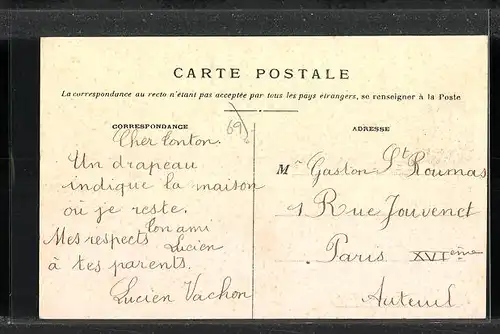 CARTE POSTALE
La correspondance au recto n'étant pas acceptée par tous les pays étrangers, se renseigner à la Poste
69
CORRESPONDANCE
Cher Tonton.
Un drapeau
indique la maison
où je reste.
ton ami
Lucien
Mes respects
à tes parents.
Lucien Vachon
ADRESSE
Mr Gaston St Roumas
1 Rue Jouvenet
Paris XVIeme
Auteuil